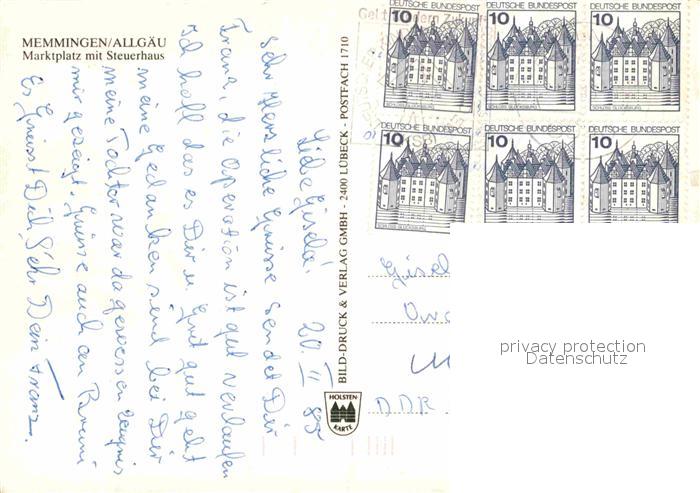 MEMMINGEN/ALLGÄU
Marktplatz mit Steuerhaus
Liebe Gisela! 20. II 85
Sehr Herzliche Grüsse sendet Dir
Franz, die Operation ist gut verlaufen
Ich hoff das es Dir u. Gret gut geht
meine Gedanken send bei Dir
meine Tochter war da gewessen
mir gezeigt. Grüsse auch an Bruni
Es Grüsst Dich Sehr Dein Franz.
BILD-DRUCK & VERLAG GMBH - 2400 LÜBECK - POSTFACH 1710
HOLSTEN-
KARTE
10
DEUTSCHE BUNDESPOST
SCHLOSS GLÜCKSBURG
10
DEUTSCHE BUNDESPOST
SCHLOSS GLÜCKSBURG
10
DEUTSCHE BUNDESPOST
SCHLOSS GLÜCKSBURG
10
DEUTSCHE BUNDESPOST
SCHLOSS GLÜCKSBURG
10
DEUTSCHE BUNDESPOST
10
DEUTSCHE BUNDESPOST
Gisel
DDR
privacy protection
Datenschutz